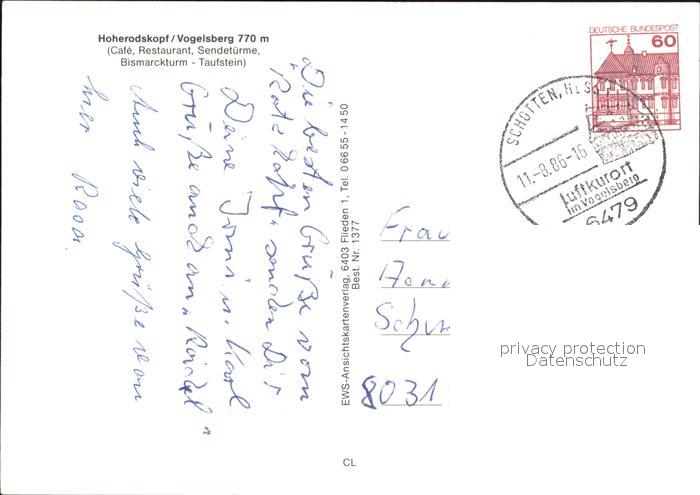 Hoherodskopf / Vogelsberg 770 m
(Café, Restaurant, Sendetürme,
Bismarckturm - Taufstein)
DEUTSCHE BUNDESPOST
60
SCHOTTEN, HESS
11.-8.86-16
Luftkurort
im Vogelsberg
6479
Die besten Grüße vom
senden Dir
Deine u. Karl
Grüße auch an
Auch viele Grüße von
hier
EWS-Ansichtskartenverlag, 6403 Flieden 1, Tel. 0 66 55 - 14 50
Best. Nr. 1377
Frau
8031
privacy protection
Datenschutz
CL